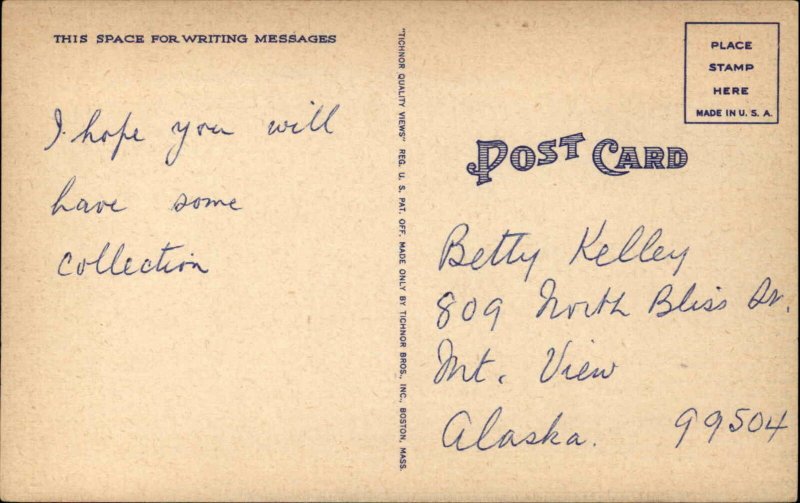 THIS SPACE FOR WRITING MESSAGES
I hope you will
have some
collection
"TICHNOR QUALITY VIEWS" REG. U. S. PAT. OFF. MADE ONLY BY TICHNOR BROS., INC., BOSTON, MASS.
PLACE
STAMP
HERE
MADE IN U. S. A.
POST CARD
Betty Kelley
809 North Bliss St.
Mt. View
Alaska. 99504